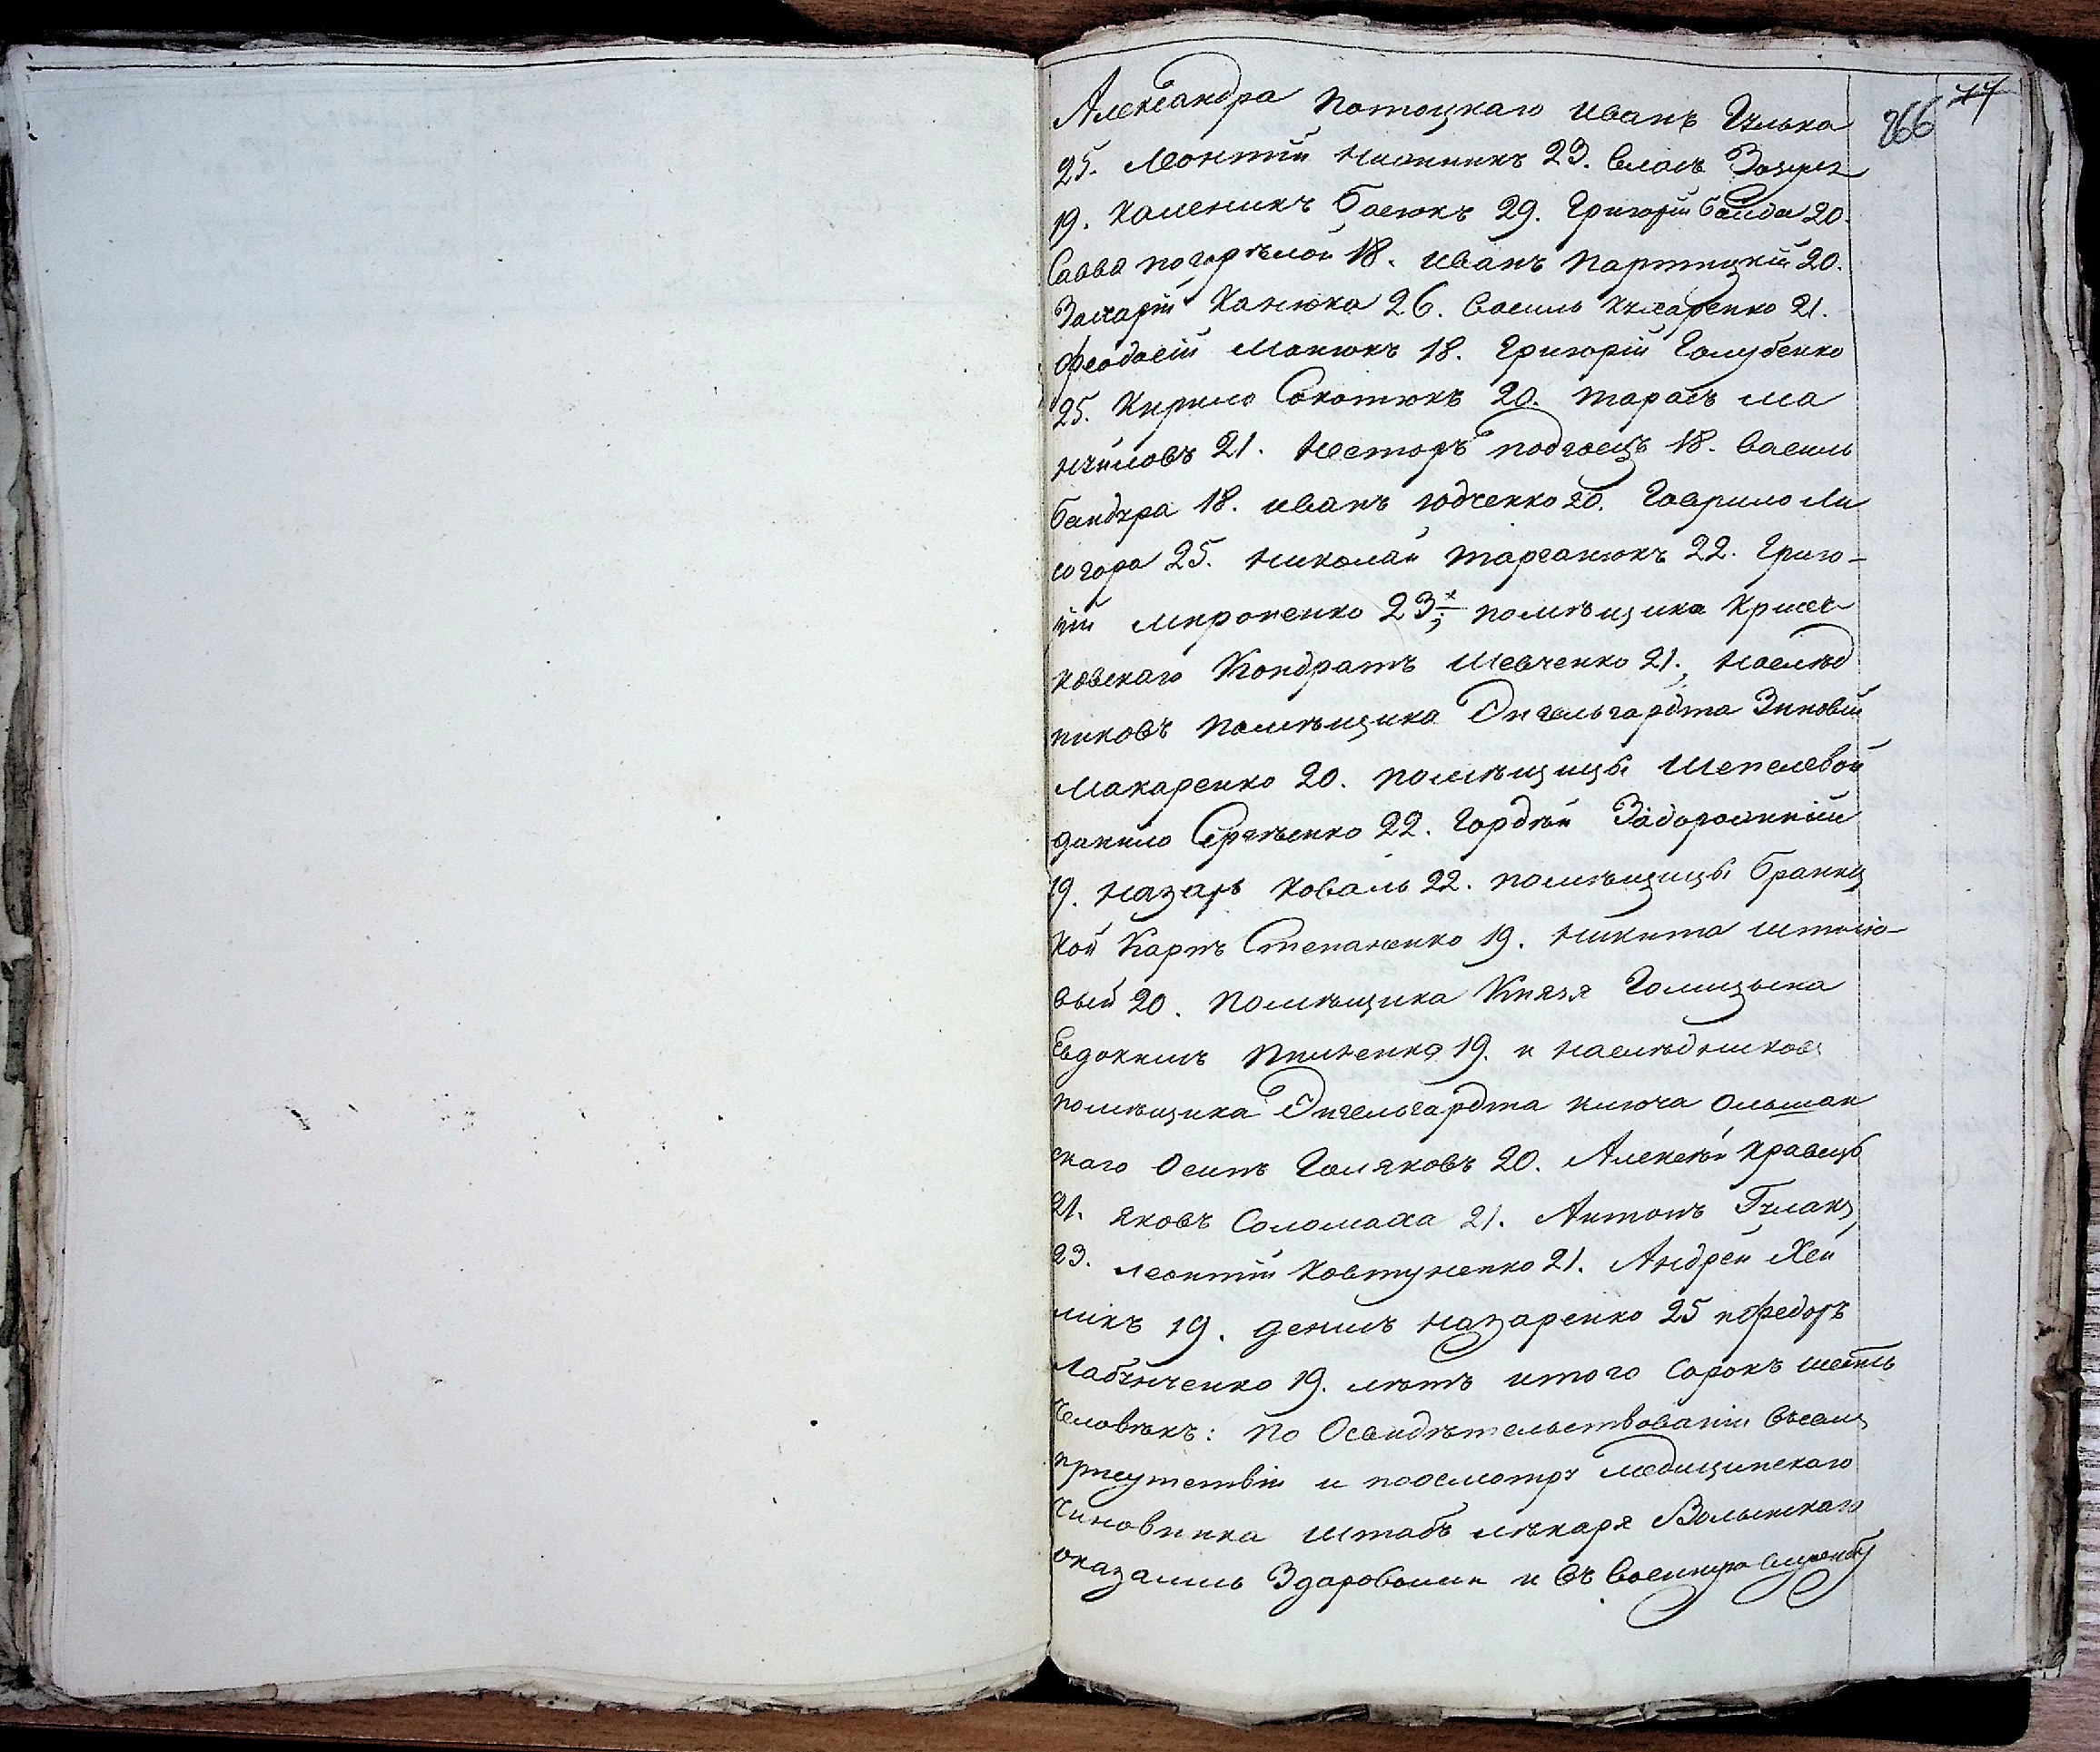 Александра Потоцкаго Иванъ Гулька
25. Леонтій Никникъ 23. Власъ
19. Каленикъ Басюкъ 29. Григорій Баида 20.
Савва погорѣлой 18. Иванъ Партицкій 20.
Захарій Канюка 26. Василь 21.
Феодосій Манюкъ 18. Григорій Голубенко
25. Кирило Сокотюкъ 20. Тарасъ Ма
нъиловъ 21. Несторъ подгаецъ 18. Василь
бандура 18. Иванъ Юдченко 20. Гаврило Ли
согора 25. Николай Тарсанюкъ 22. Григо-
рій Мироненко 23х; помѣщика Крига-
ковскаго Кондратъ Шевченко 21; Наслѣд
никовъ помѣщика Енгельгардта Зиновій
Макаренко 20. помѣщицы Шепелевой
данило Сергѣенко 22. Гордѣй Задорожній
19. Назаръ Коваль 22. помѣщицы Браниц
кой Карпъ Степаненко 19. Никита
вый 20. Помѣщика Князя Голицына
Евдокимъ Пилипенко 19. и наслѣдниковъ
помѣщика Енгельгардта ключа Ольшан
скаго Осипъ Голяковъ 20. Алексѣй Кравецъ
21. Яковъ Соломаха 21. Антонъ Гулакъ
23. Леонтій Ковтуненко 21. Андрей Хей
ликъ 19. денисъ Назаренко 25 и Федоръ
Лабунченко 19. лѣтъ итого Сорокъ шесть
человѣкъ: По Освидѣтельствованіи Въсемъ
присутствіи и поосмотру Медицинскаго
Чиновника Штабъ лѣкаря Волынскаго
оказались Здоровыми и въ Военную службу
266 77